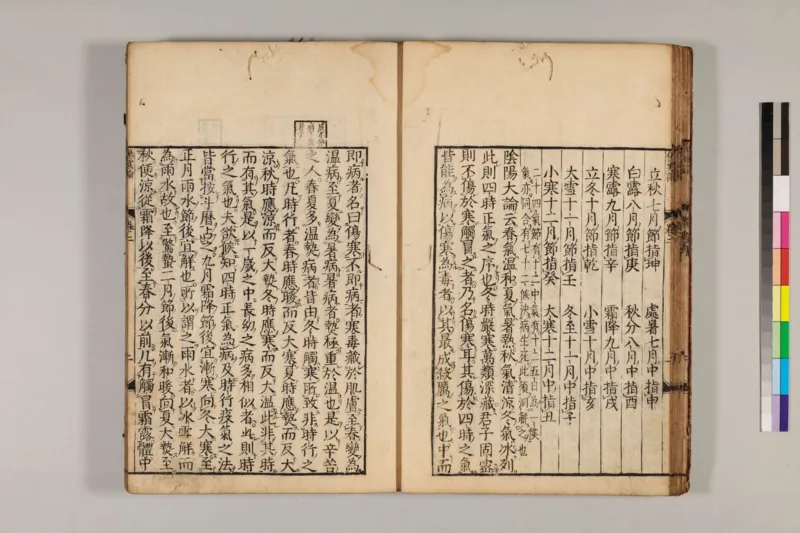 立秋七月節指坤　處暑七月中指申
白露八月節指庚　秋分八月中指酉
寒露九月節指辛　霜降九月中指戌
立冬十月節指乾　小雪十月中指亥
大雪十一月節指壬　冬至十一月中指子
小寒十二月節指癸　大寒十二月中指丑
二十四氣節有十二中氣有十二五日為一候
氣亦同合有七十二候決病生死此須洞解之也
陰陽大論云春氣溫和夏氣暑熱秋氣清涼冬氣冰列
此則四時正氣之序也冬時嚴寒萬類深藏君子固密
則不傷於寒觸冒之者乃名傷寒耳其傷於四時之氣
皆能為病以傷寒為毒者以其最成殺厲之氣也中而
即病者名曰傷寒不即病者寒毒藏於肌膚至春變為
溫病至夏變為暑病暑病者熱極重於溫也是以辛苦
之人春夏多溫熱病者皆由冬時觸寒所致非時行之
氣也凡時行者春時應暖而反大寒夏時應熱而反大
涼秋時應涼而反大熱冬時應寒而反大溫此非其時
而有其氣是以一歲之中長幼之病多相似者此則時
行之氣也夫欲候知四時正氣為病及時行疫氣之法
皆當按斗曆占之九月霜降節後宜漸寒向冬大寒至
正月雨水節後宜解也所以謂之雨水者以冰雪解而
為雨水故也至驚蟄二月節後氣漸和暖向夏大熱至
秋便涼從霜降以後至春分以前凡有觸冒霜露體中